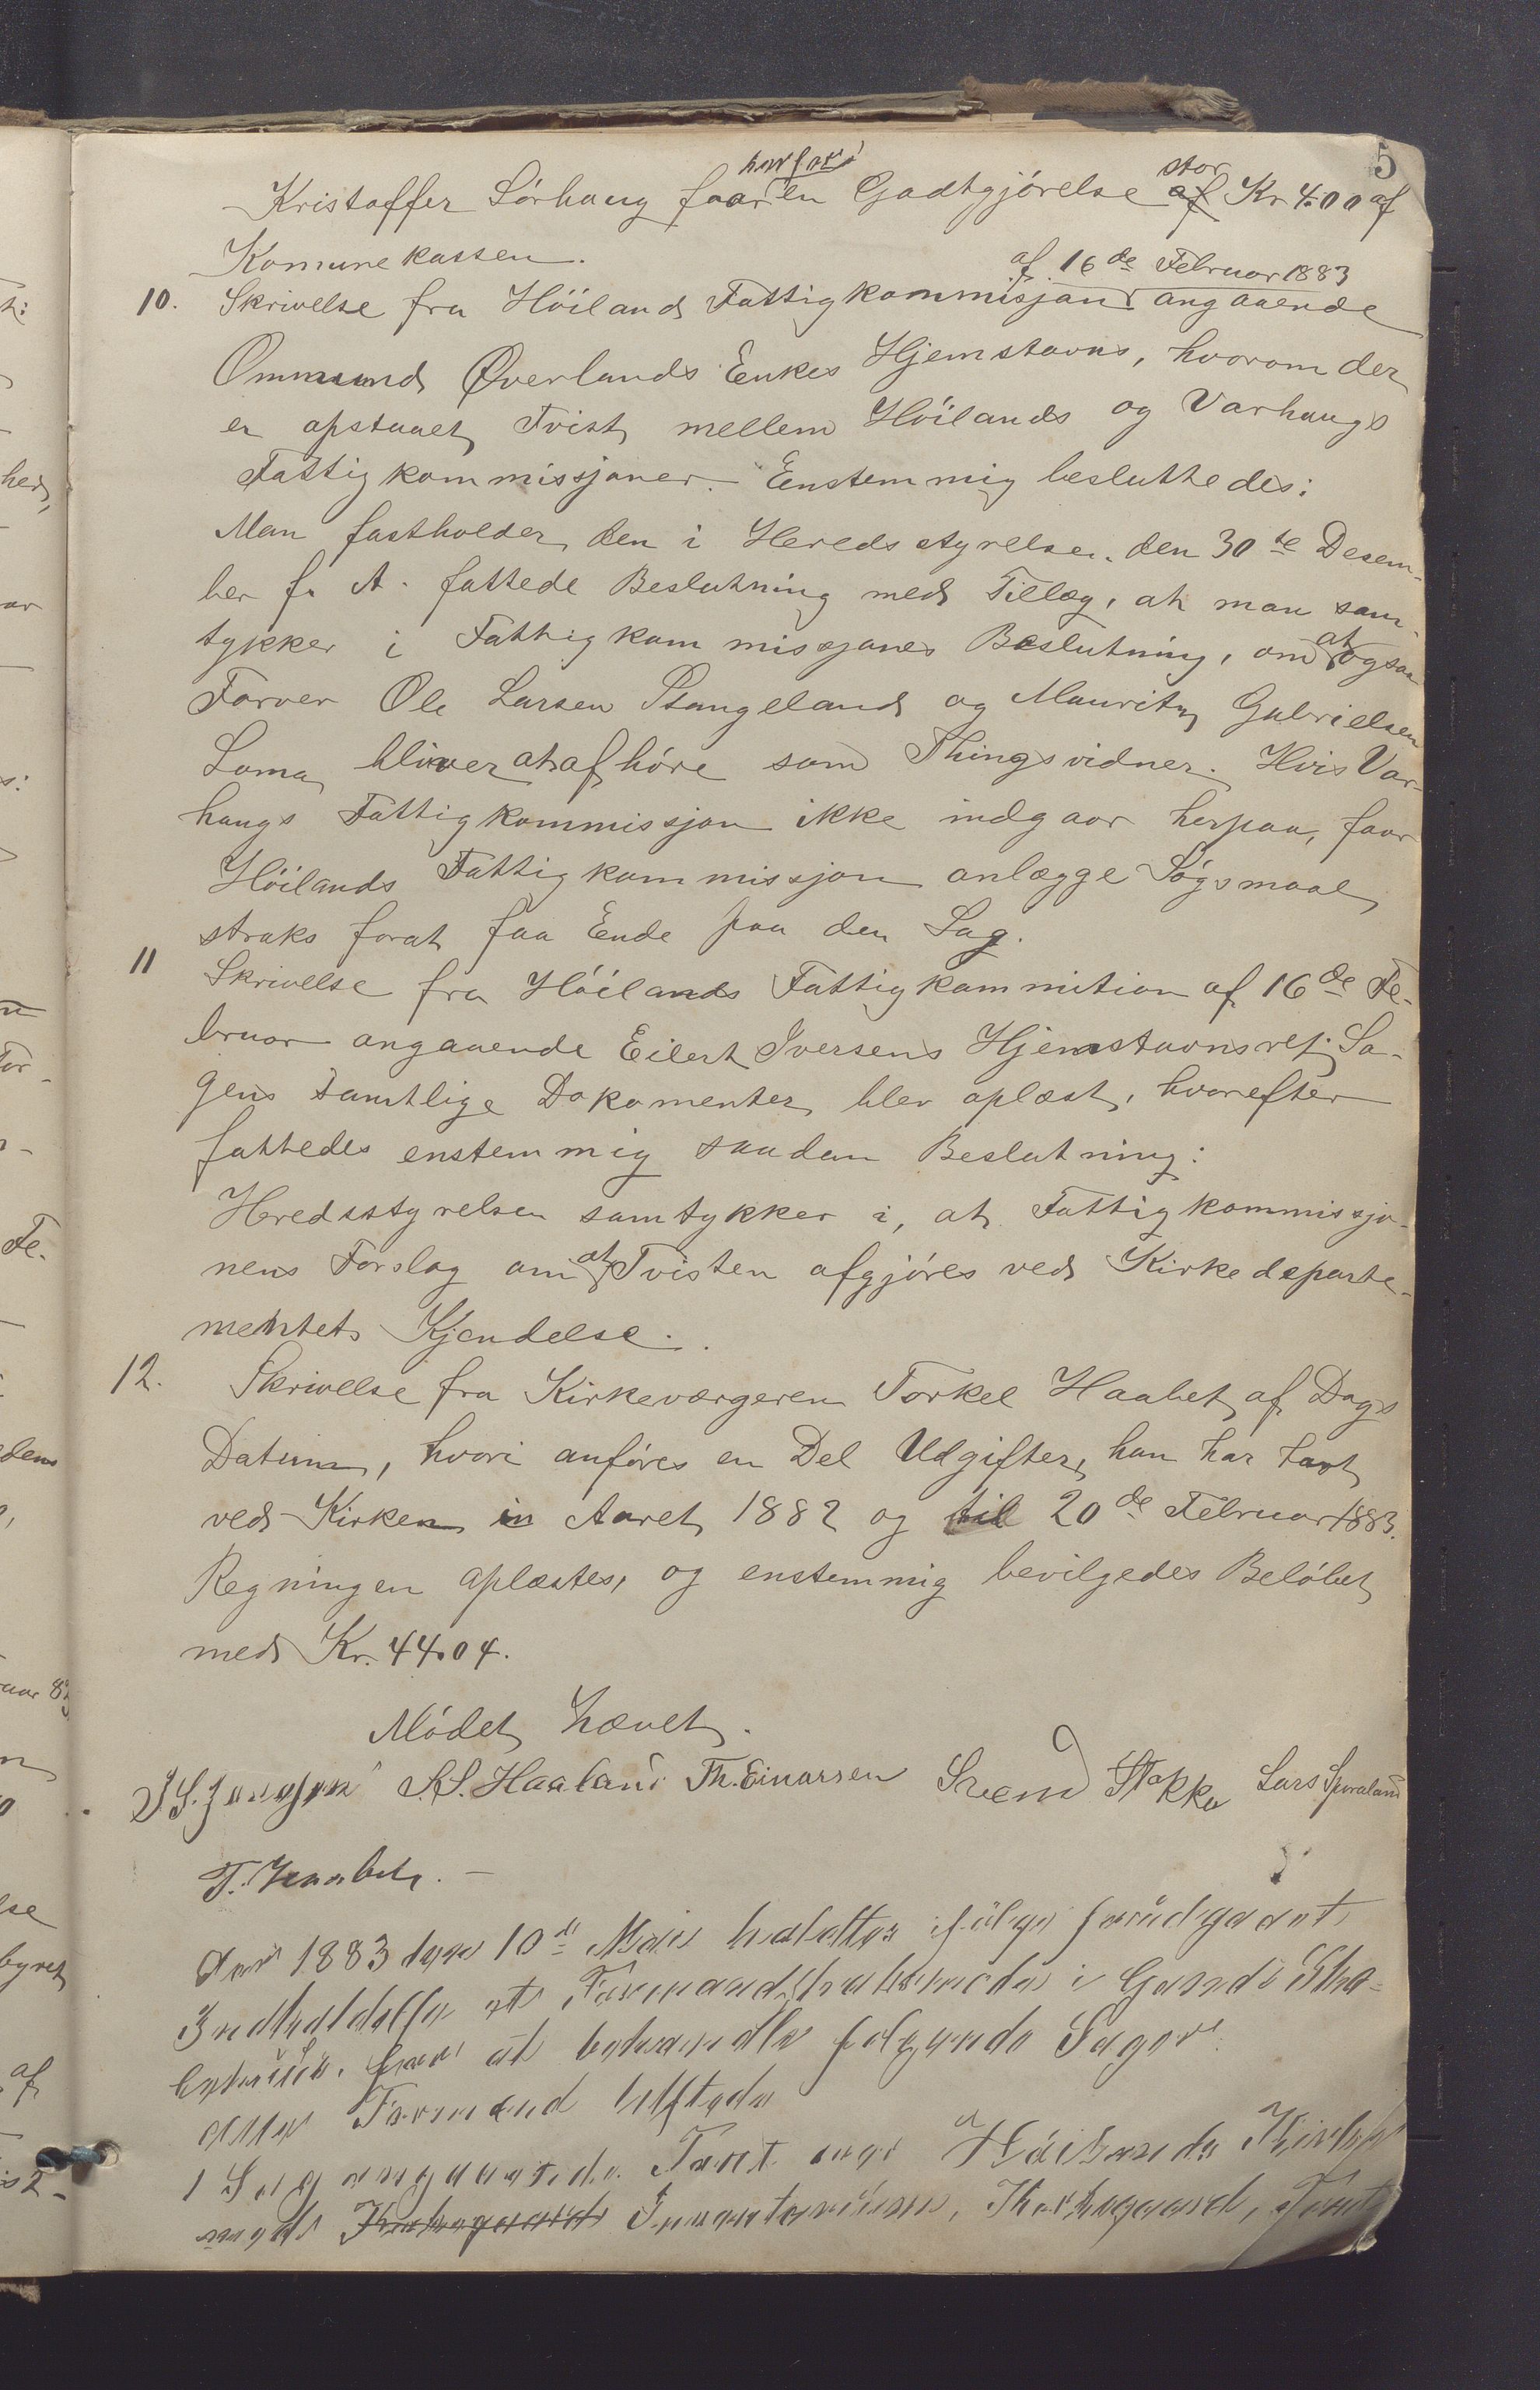 5
Kristoffer Sörhaug faar herfor en Godtgjörelse stor af Kr 4.00 af
Komunekassen.
10. Skrivelse fra Höiland Fattigkommisjon af 16de Februar 1883 angaaende
Ommund Øverlands Enkes Hjemstavns, hvorom der
er opstaaet Tvist mellem Höilands og Varhaugs
Fattigkommissjoner. Eenstemmig besluttedes:
Man fastholder den i Heredsstyrelsen den 30te Desem-
ber f. A. fattede Beslutning med Tillæg, at man sam-
tykker i Fattigkommissjones Beslutning, om at ogsaa
Farver Ole Larsen Stangeland og Mauritz Gabrielsen
Loma bliver at afhöre som Thingsvidner. Hvis Var-
haugs Fattigkommissjon ikke indgaar herpaa, faar
Höilands Fattigkommissjon anlægge Sögsmaal
straks forat faa Ende paa den Sag.
11 Skrivelse fra Höilands Fattigkommition af 16de Fe-
bruar angaaende Eilert Iversens Hjemstavnsret. Sa-
gens samtlige Dokomenter blev oplæst, hvorefter
fattedes enstemmig saadan Beslutning:
Heredsstyrelsen samtykker i, at Fattigkommissjo-
nens Forslag om at Tvisten afgjöres ved Kirkedeparte-
mentets Kjendelse.
12. Skrivelse fra Kirkeværgeren Torkel Haabet af Dags
Datum, hvori anföres en Del Udgifter, han har havt
ved Kirken in Aaret 1882 og til 20de Februar 1883.
Regningen oplæstes, og enstemmig bevilgedes Belöbet
med Kr. 44.04.
Mödet hævet.
S. S. Haaland Th. Einarsen Svend Stokka Lars
T. Haabet.
Aar 1883 den 10de Mai holdtes ifölge forudgaaet
Indkaldelse et Formandskabsmöde i Gands Sko-
for at behandle folgende Sager
Formand
1 Sag angaaende Tavt over Höilands Kirke
med Kirkegaard Inventarium, Kirkegaard, Tomt